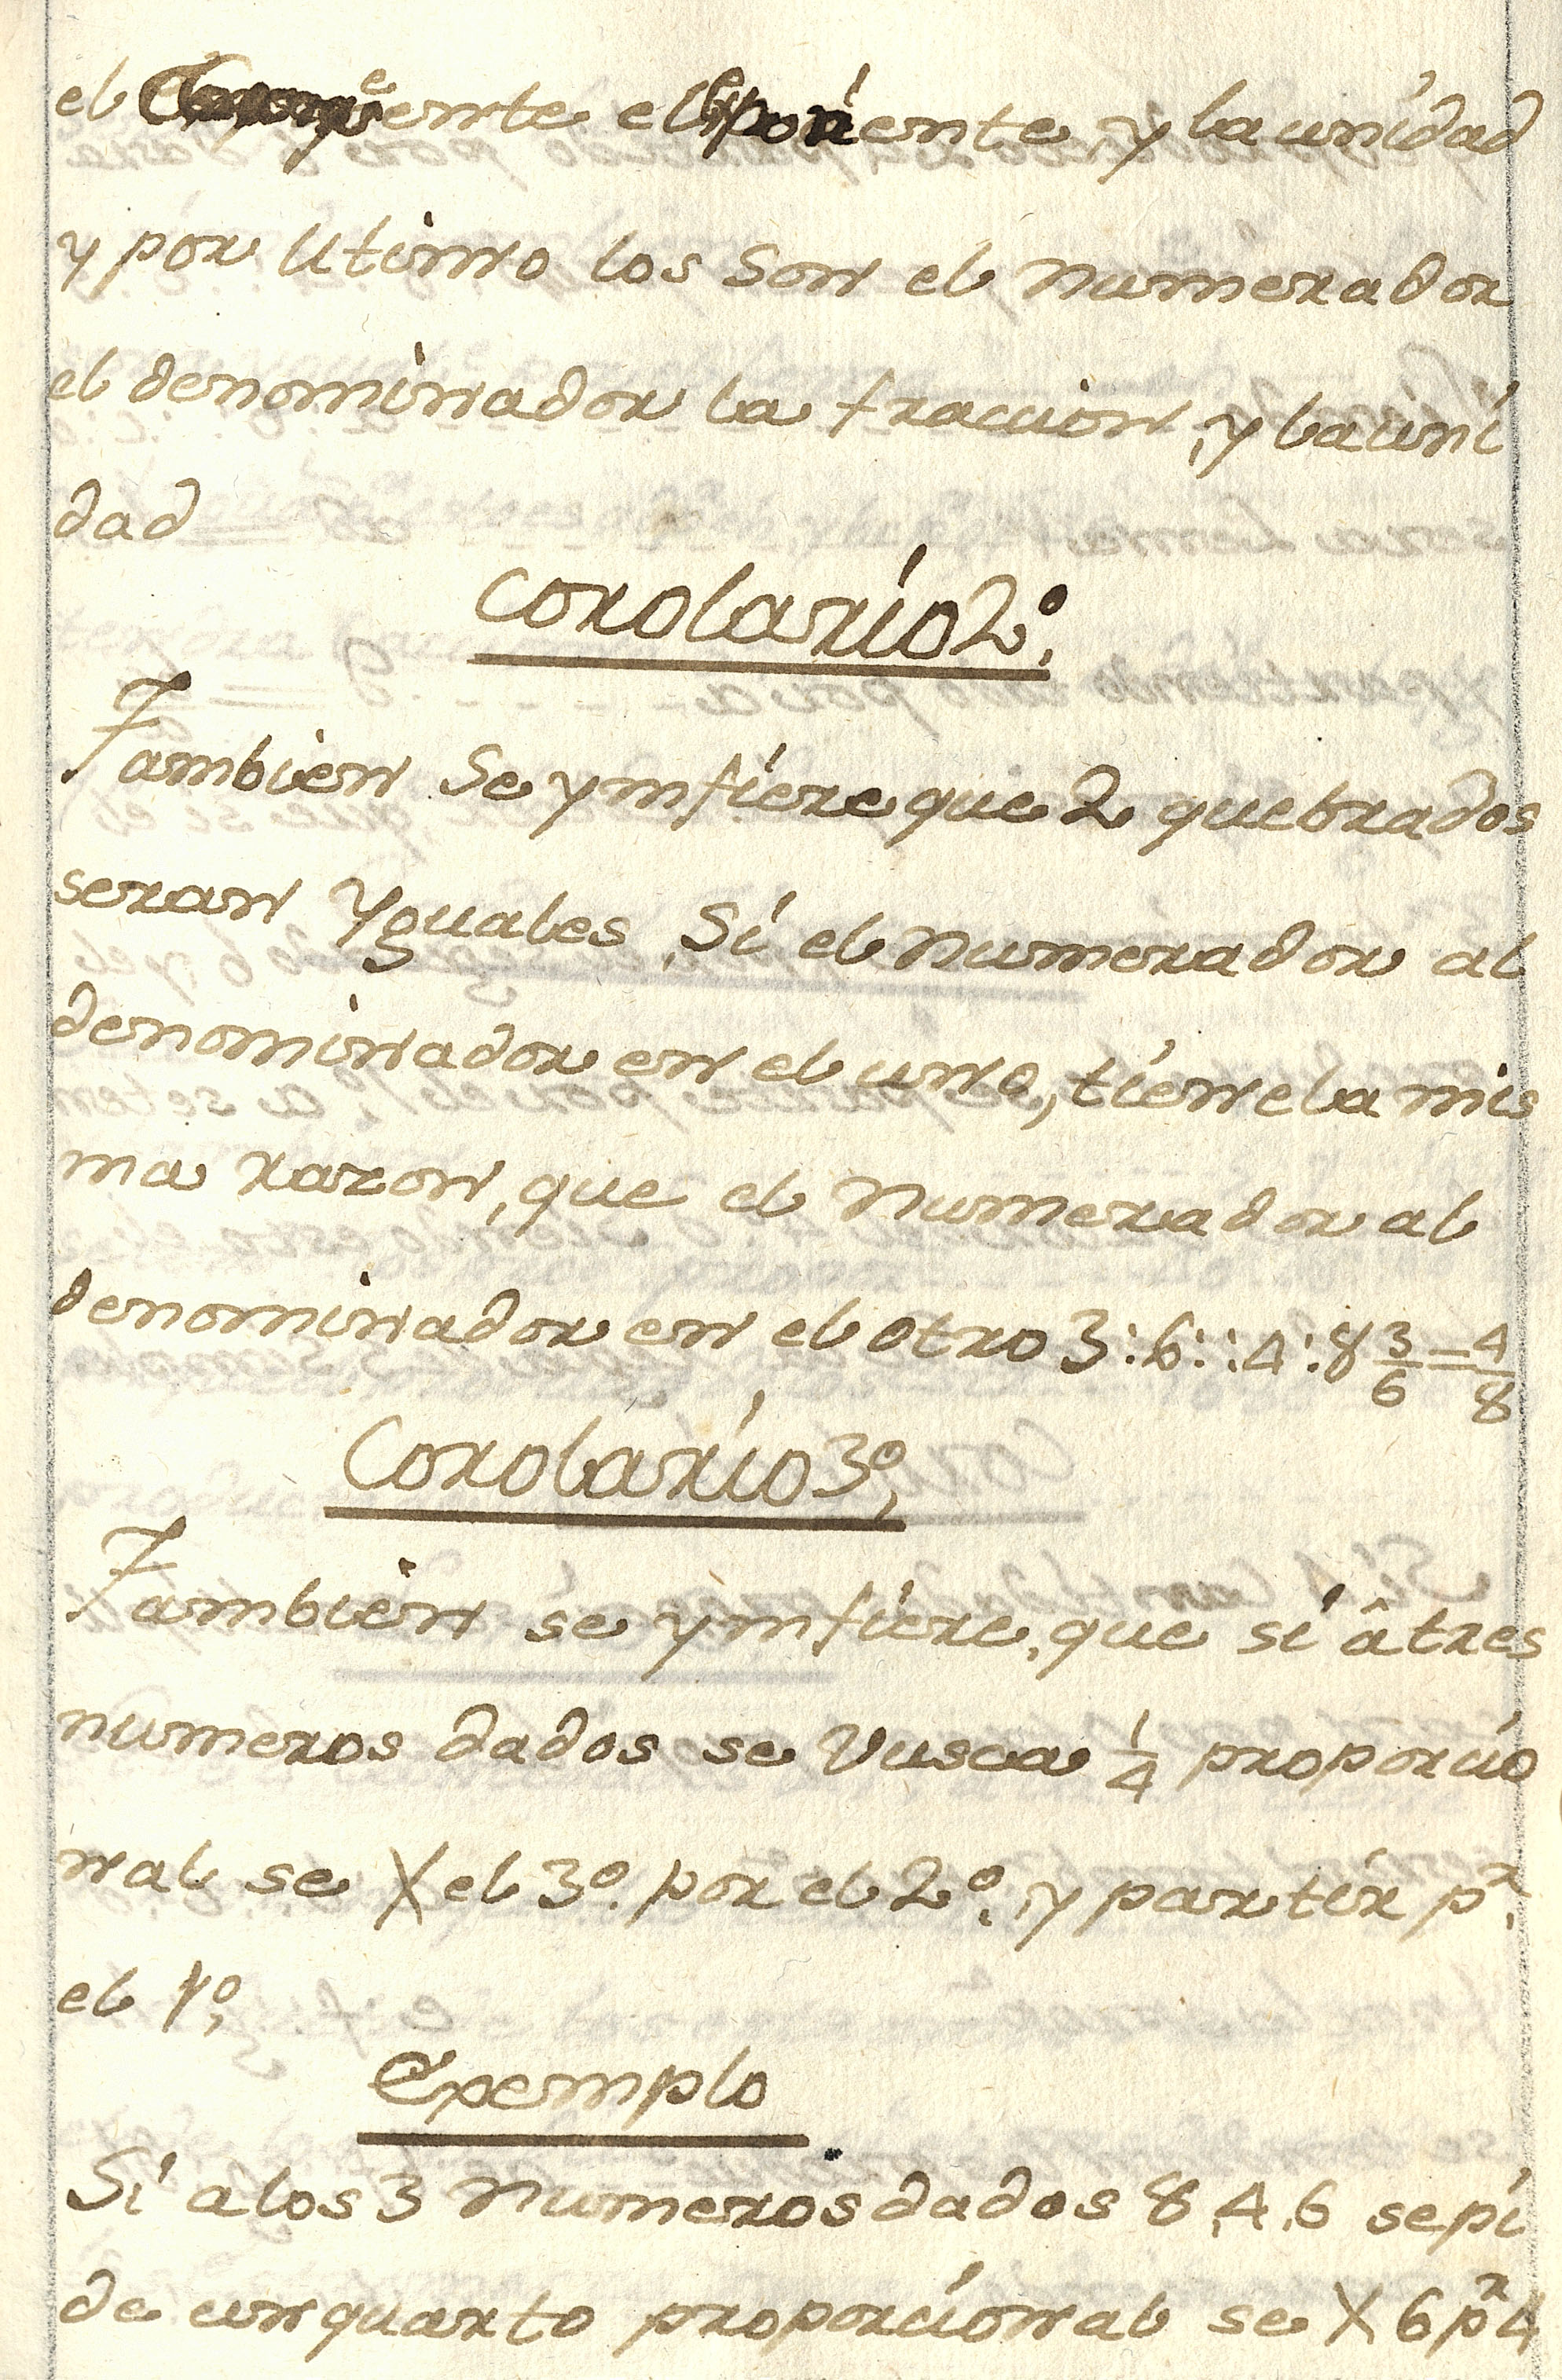 el ente el ponente, y la unidad
y por Utimo los son el numerador
el denominador la fraccion, y la uni
dad
Corolario 2º.
Tambien Se ymfiere que 2 quebrados
seran Yguales, Si el numerador al
denominador en el uno, tiene la mis
ma razon, que el numerador al
denominador en el otro 3:6::4:8 3/6=4/8
Corolario 3º,
Tambien se ymfiere, que si â tres
numeros dados se Vusca 1/4 proporcio
nal se X el 3º. por el 2º., y partir pr.
el 1º,
Exemplo
Si a los 3 numeros dados 8,4,6 se pi
de un quarto proporcional se X 6 pr 4